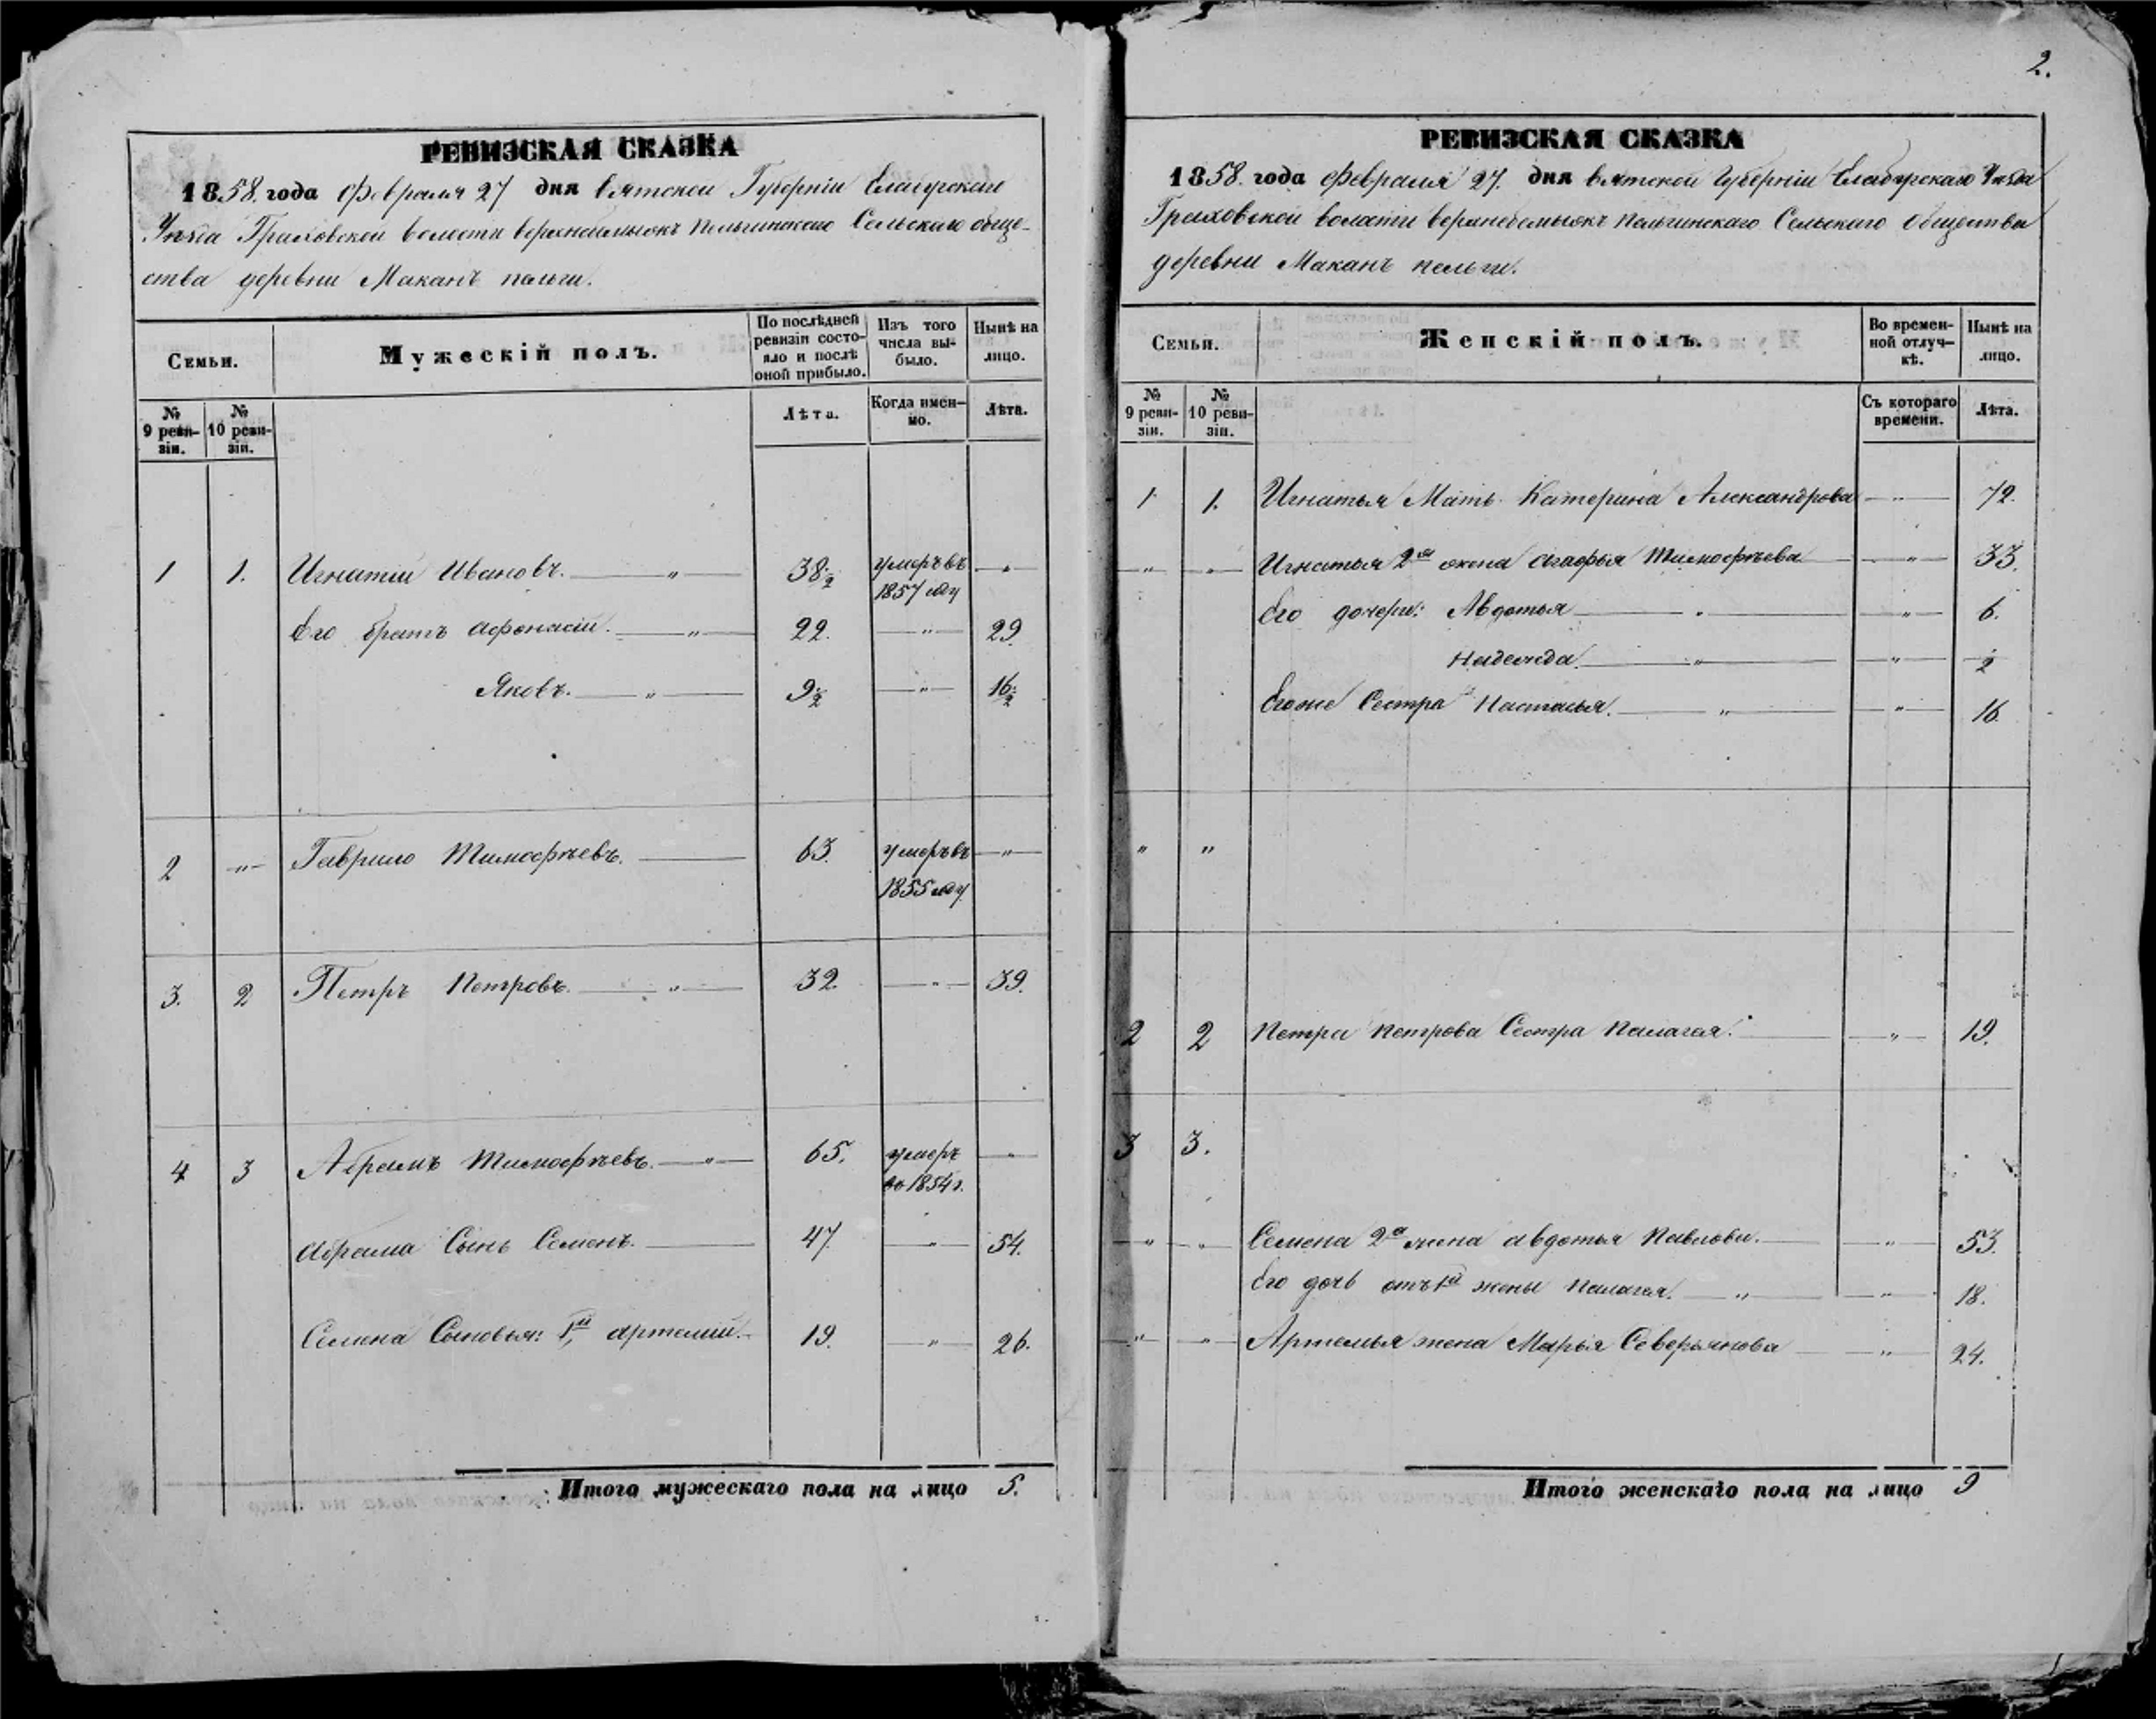 2.
РЕВИЗСКАЯ СКАЗКА
1858. года Февраля 27 дня Вятской Губерніи Елабугскаго
Уѣзда Граховской волости Пельгинскаго Сельскаго обще-
ства деревни Маканъ пельги.
Семьи.
Мужескій полъ.
По послѣдней ревизіи состо-
яло и послѣ оной прибыло.
Изъ того числа вы-
было.
Нынѣ на лицо.
№ 9 реви-
зіи.
№ 10 реви-
зіи.
Лѣта.
Когда имен-
но.
Лѣта.
1 1. Игнатій Ивановъ. — „ — 38½ умеръ въ — „ —
1857 году
Его братъ Афонасій. — „ — 22. — „ — 29.
Яковъ. — „ — 9½ — „ — 16½
2 — „ — Гаврило Тимофѣевъ. — 63. умеръ въ — „ —
1855 году
3. 2 Петръ Петровъ. — „ — 32. — „ — 39.
4 3 Абрамъ Тимофѣевъ. — „ — 65. умеръ — „ —
въ 1854 г.
Абрама Сынъ Семенъ. — 47. — „ — 54.
Семена Сыновья: 1й Артемій. — 19. — „ — 26.
Итого мужескаго пола на лицо 5.
РЕВИЗСКАЯ СКАЗКА
1858. года Февраля 27. дня Вятской Губерніи Елабугскаго Уѣзда
Граховской волости Пельгинскаго Сельскаго Общества
деревни Маканъ пельги.
Семьи.
Женскій полъ.
Во времен-
ной отлуч-
кѣ.
Нынѣ на лицо.
№ 9 реви-
зіи.
№ 10 реви-
зіи.
Съ котораго времени.
Лѣта.
1 1. Игнатья Мать Катерина Александрова — „ — 72.
— „ — — „ — Игнатья 2я жена Агафья Тимофѣева — „ — 33.
Его дочери: Авдотья — „ — — „ — 6.
Надежда. — „ — — „ — ½
Егоже Сестра Настасья. — „ — — „ — 16.
„ „
2 2 Петра Петрова Сестра Палагея. — — „ — 19.
3 3.
— „ — — „ — Семена 2я жена Авдотья Павлова. — — „ — 53.
Его дочь отъ 1й жены Палагея. — „ — — „ — 18.
— „ — — „ — Артемья жена Марья Северьянова — — „ — 24.
Итого женскаго пола на лицо 9